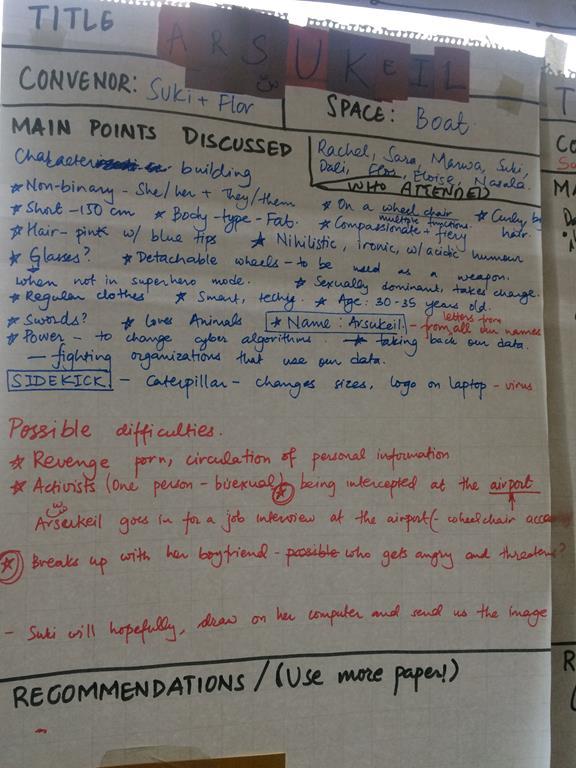 TITLE
ARSUKEIL
CONVENOR: Suki + Flor
SPACE: Boat
MAIN POINTS DISCUSSED
Rachel, Sara, Marwa, Suki,
Dali, Flor, Eloise, Nasala.
WHO ATTENDED
Character building
* Non-binary - She/her + They/them
* On a wheel chair
multiple functions.
* Curly
hair.
* Short - 150 cm * Body-type - Fat. * Compassionate + fiery
* Hair - pink w/ blue tips * Nihilistic, ironic, w/ acidic humour
* Glasses? * Detachable wheels - to be used as a weapon.
when not in superhero mode. * Sexually dominant, takes charge.
* Regular clothes * Smart, techy. * Age: 30-35 years old.
* Swords? * Loves Animals * Name: Arsukeil - letters from
from all our names
* Power - to change cyber algorithms. * taking back our data.
- fighting organizations that use our data.
SIDEKICK - Caterpillar - changes sizes, logo on laptop - virus
Possible difficulties.
* Revenge porn, circulation of personal information
* Activists (One person - bisexual) * being intercepted at the airport
Arseukeil goes in for a job interview at the airport (- wheelchair
* Breaks up with her boyfriend - possible who gets angry and threatens?
- Suki will hopefully, draw on her computer and send us the image
RECOMMENDATIONS / (Use more paper!)